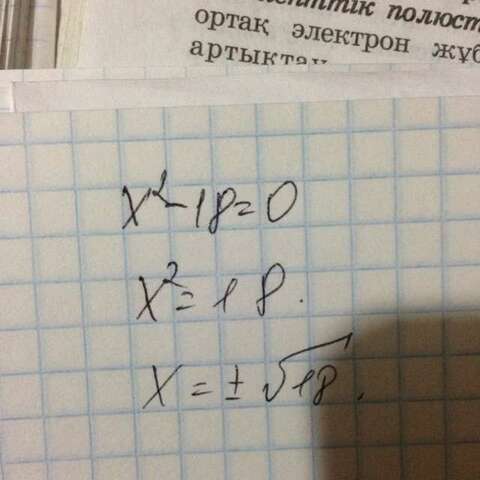 полюст
ортақ электрон жұб
артықтау
x²-18=0
x²=18.
x=±√18.